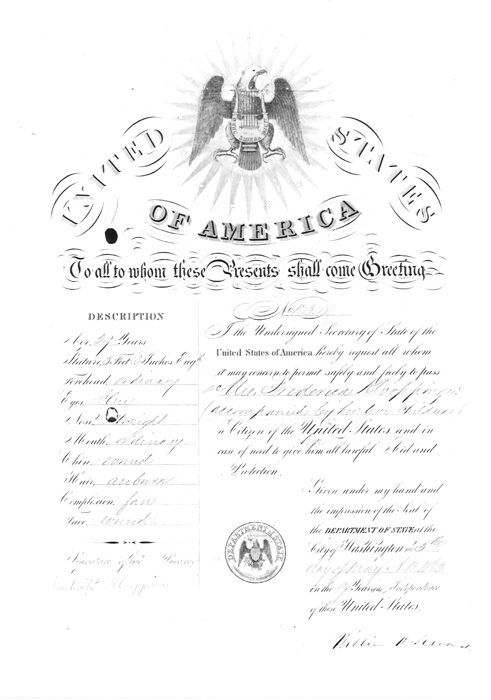 UNITED STATES
OF AMERICA
To all to whom these Presents shall come Greeting
DESCRIPTION
Age, Years
Stature, 5 Feet Inches Eng.
Forehead, ordinary
Eyes, blue
Nose, straight
Mouth, ordinary
Chin, round
Hair, auburn
Complexion, fair
Face, round
Signature of the Bearer
I the Undersigned Secretary of State of the
United States of America, hereby request all whom
it may concern to permit safely and freely to pass
Mrs. Frederick
(accompanied by her two children)
a Citizen of the United States and in
case of need to give him all lawful Aid and
Protection.
Given under my hand and
the impression of the Seal of
the DEPARTMENT OF STATE at the
City of Washington
day of May
in the Year of the Independence
of these United States.
DEPARTMENT OF STATE
William H Seward